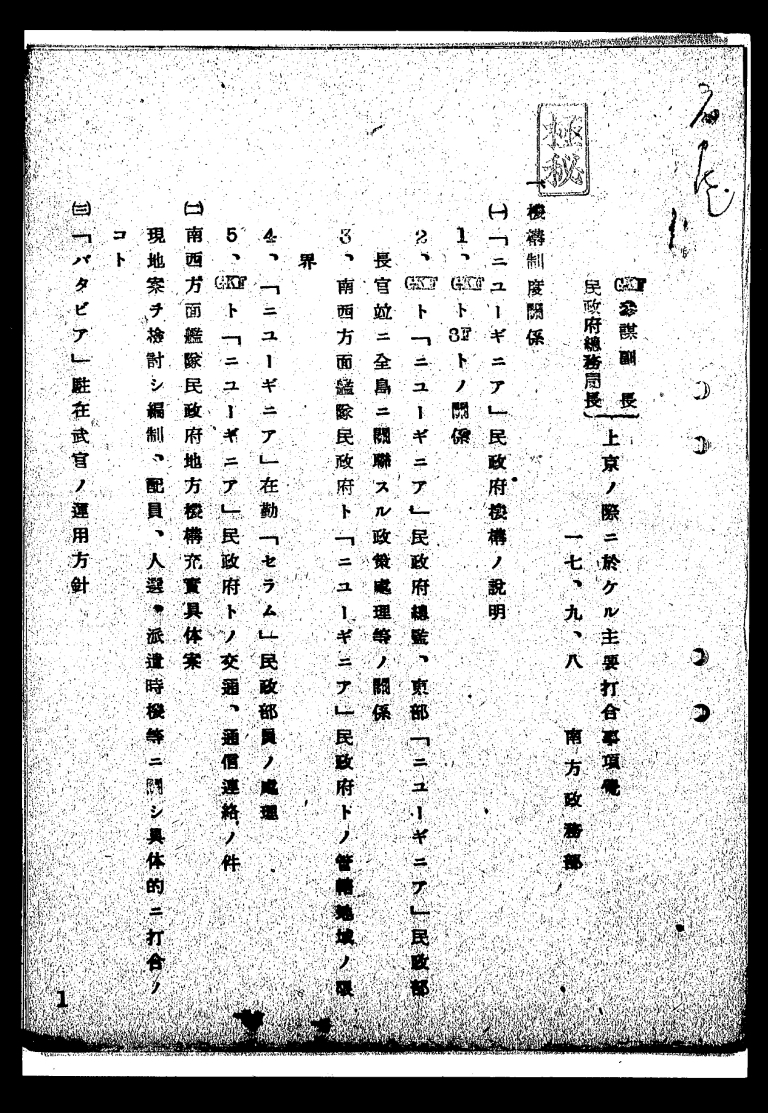 極秘
GKF參謀副長
民政府總務局長
上京ノ際ニ於ケル主要打合事項覺
一七、九、八　南方政務部
一、機構制度關係
㈠「ニユーギニア」民政府機構ノ説明
1、GKFト3Fトノ關係
2、GKFト「ニユーギニア」民政府總監、東部「ニユーギニア」民政部
長官竝ニ全島ニ關聯スル政策處理等ノ關係
3、南西方面艦隊民政府ト「ニユーギニア」民政府トノ管轄地域ノ限
界
4、「ニユーギニア」在勤「セラム」民政部員ノ處理
5、GKFト「ニユーギニア」民政府トノ交通、通信連絡ノ件
㈡南西方面艦隊民政府地方機構充實具体案
現地案ヲ檢討シ編制、配員、人選、派遣時機等ニ關シ具体的ニ打合ノ
コト
㈢「バタビア」駐在武官ノ運用方針
1